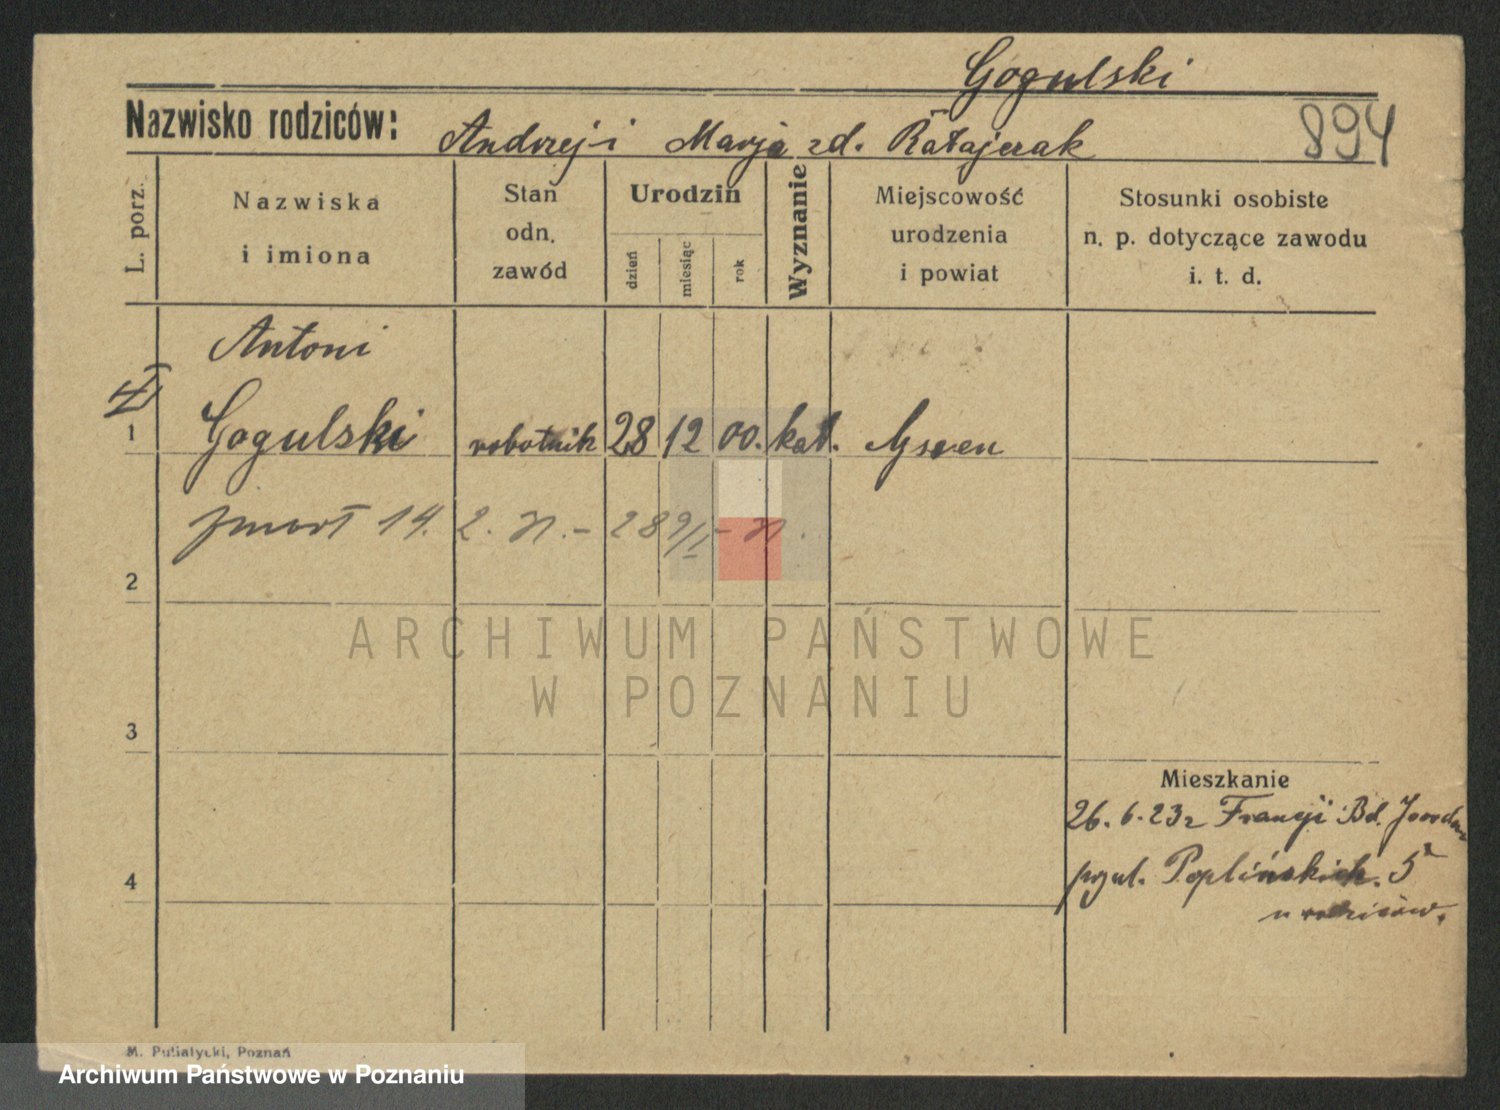 Gogulski
Nazwisko rodziców: Andrzej i Marja zd. Ratajczak
894
L. porz.
Nazwiska
i imiona
Stan
odn.
zawód
Urodzin
dzień
miesiąc
rok
Wyznanie
Miejscowość
urodzenia
i powiat
Stosunki osobiste
n. p. dotyczące zawodu
i. t. d.
Antoni
1 Gogulski robotnik 28 12 00. kat.
zmarł 14. 2. 28 9/I
2
3
4
Mieszkanie
26. 6. 23 r Francji Bd.
przyul. Poplińskich. 5
u rodziców.
ARCHIWUM PAŃSTWOWE
W POZNANIU
M. Putiatycki, Poznań
Archiwum Państwowe w Poznaniu